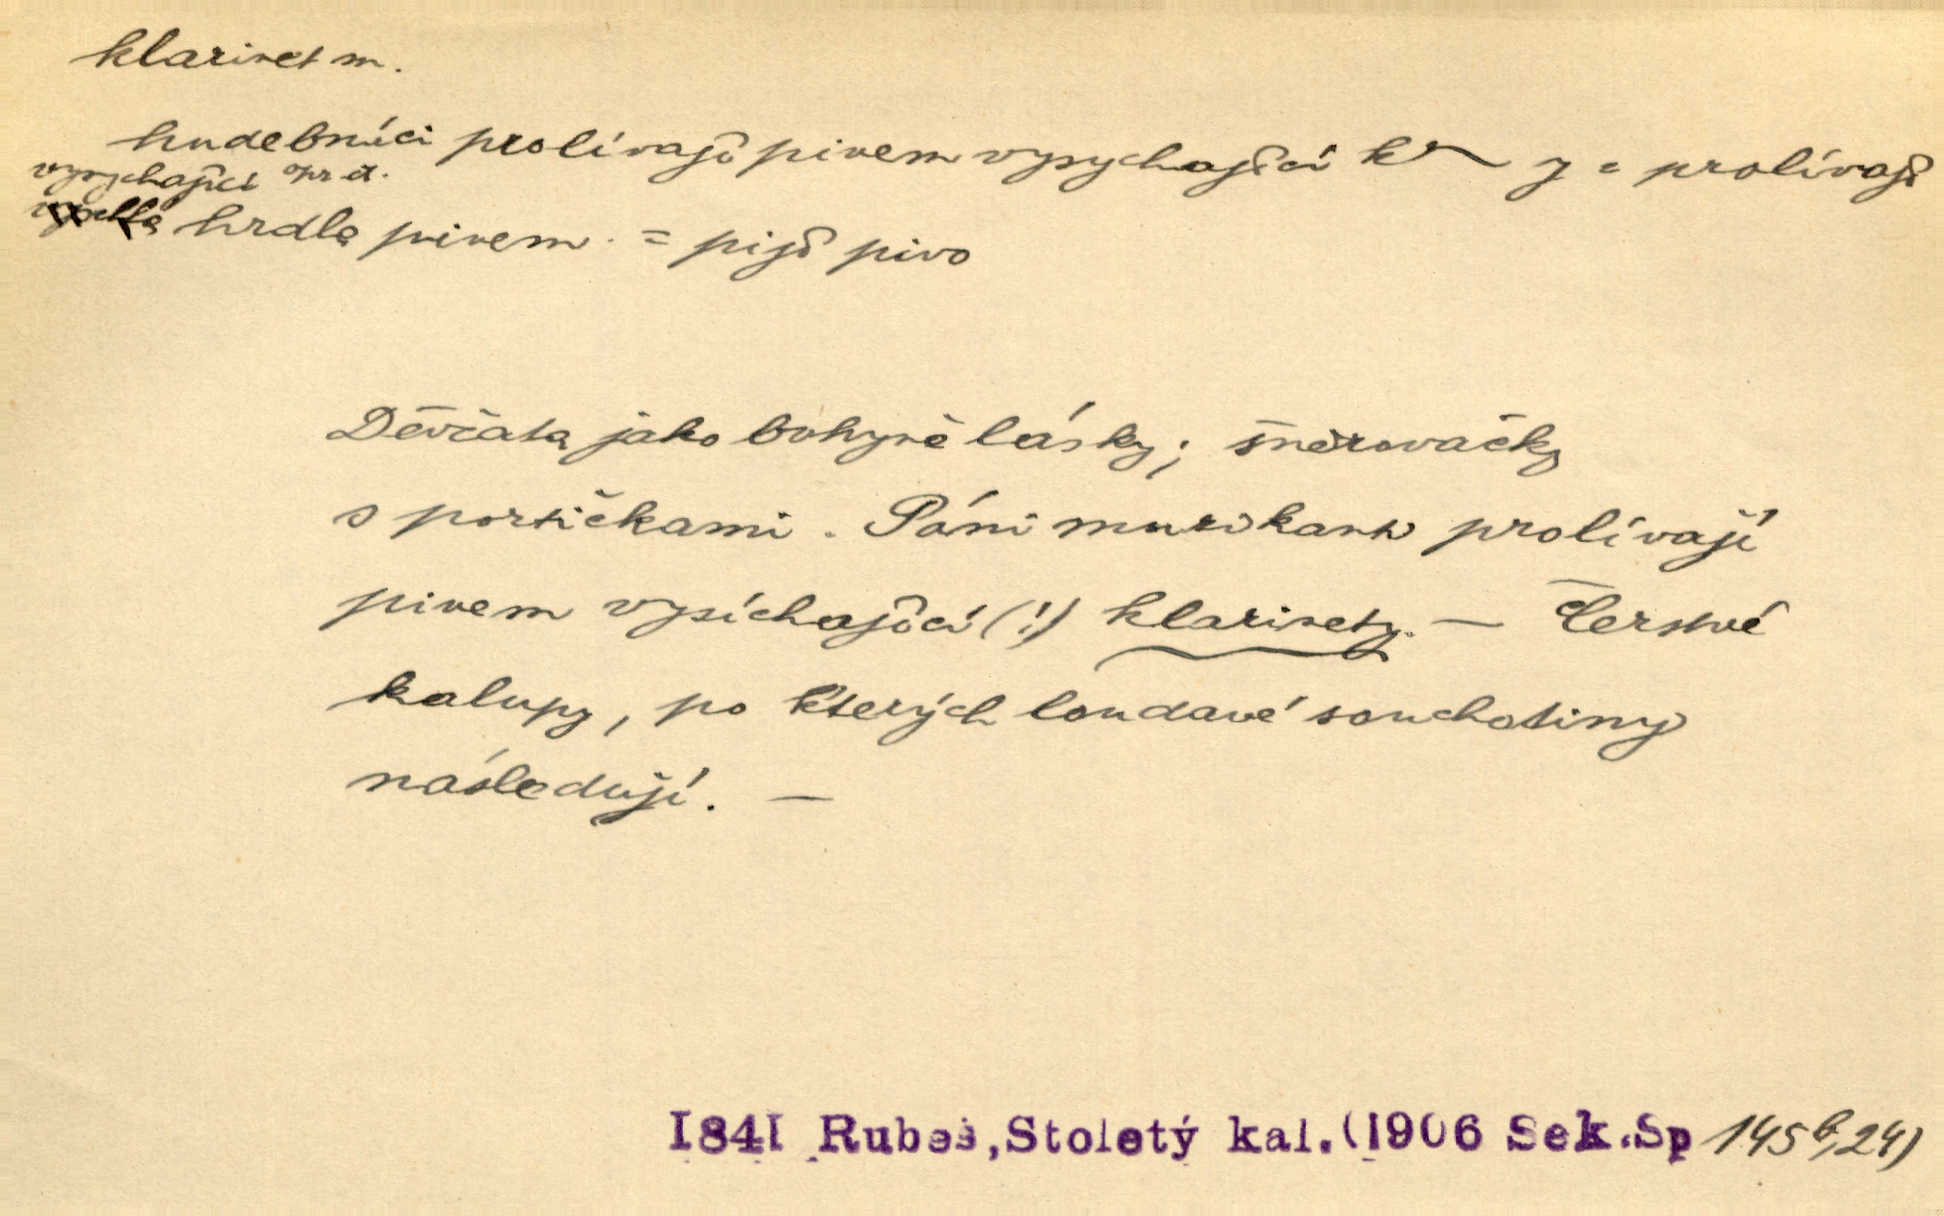 klarinet m.
hudebníci prolívají pivem vysychající k~y = prolívají
vysychající
hrdla pivem. = pijí pivo
Děvčata jako bohyně lásky; šněrovačky
s portičkami. Páni muzikanti prolívají
pivem vysíchající (!) klarinety. — Čerstvé
kalupy, po kterých loudavé souchotiny
následují. —
1841 Rubeš, Stoletý kal. (1906 Sek.Sp 145b,24)